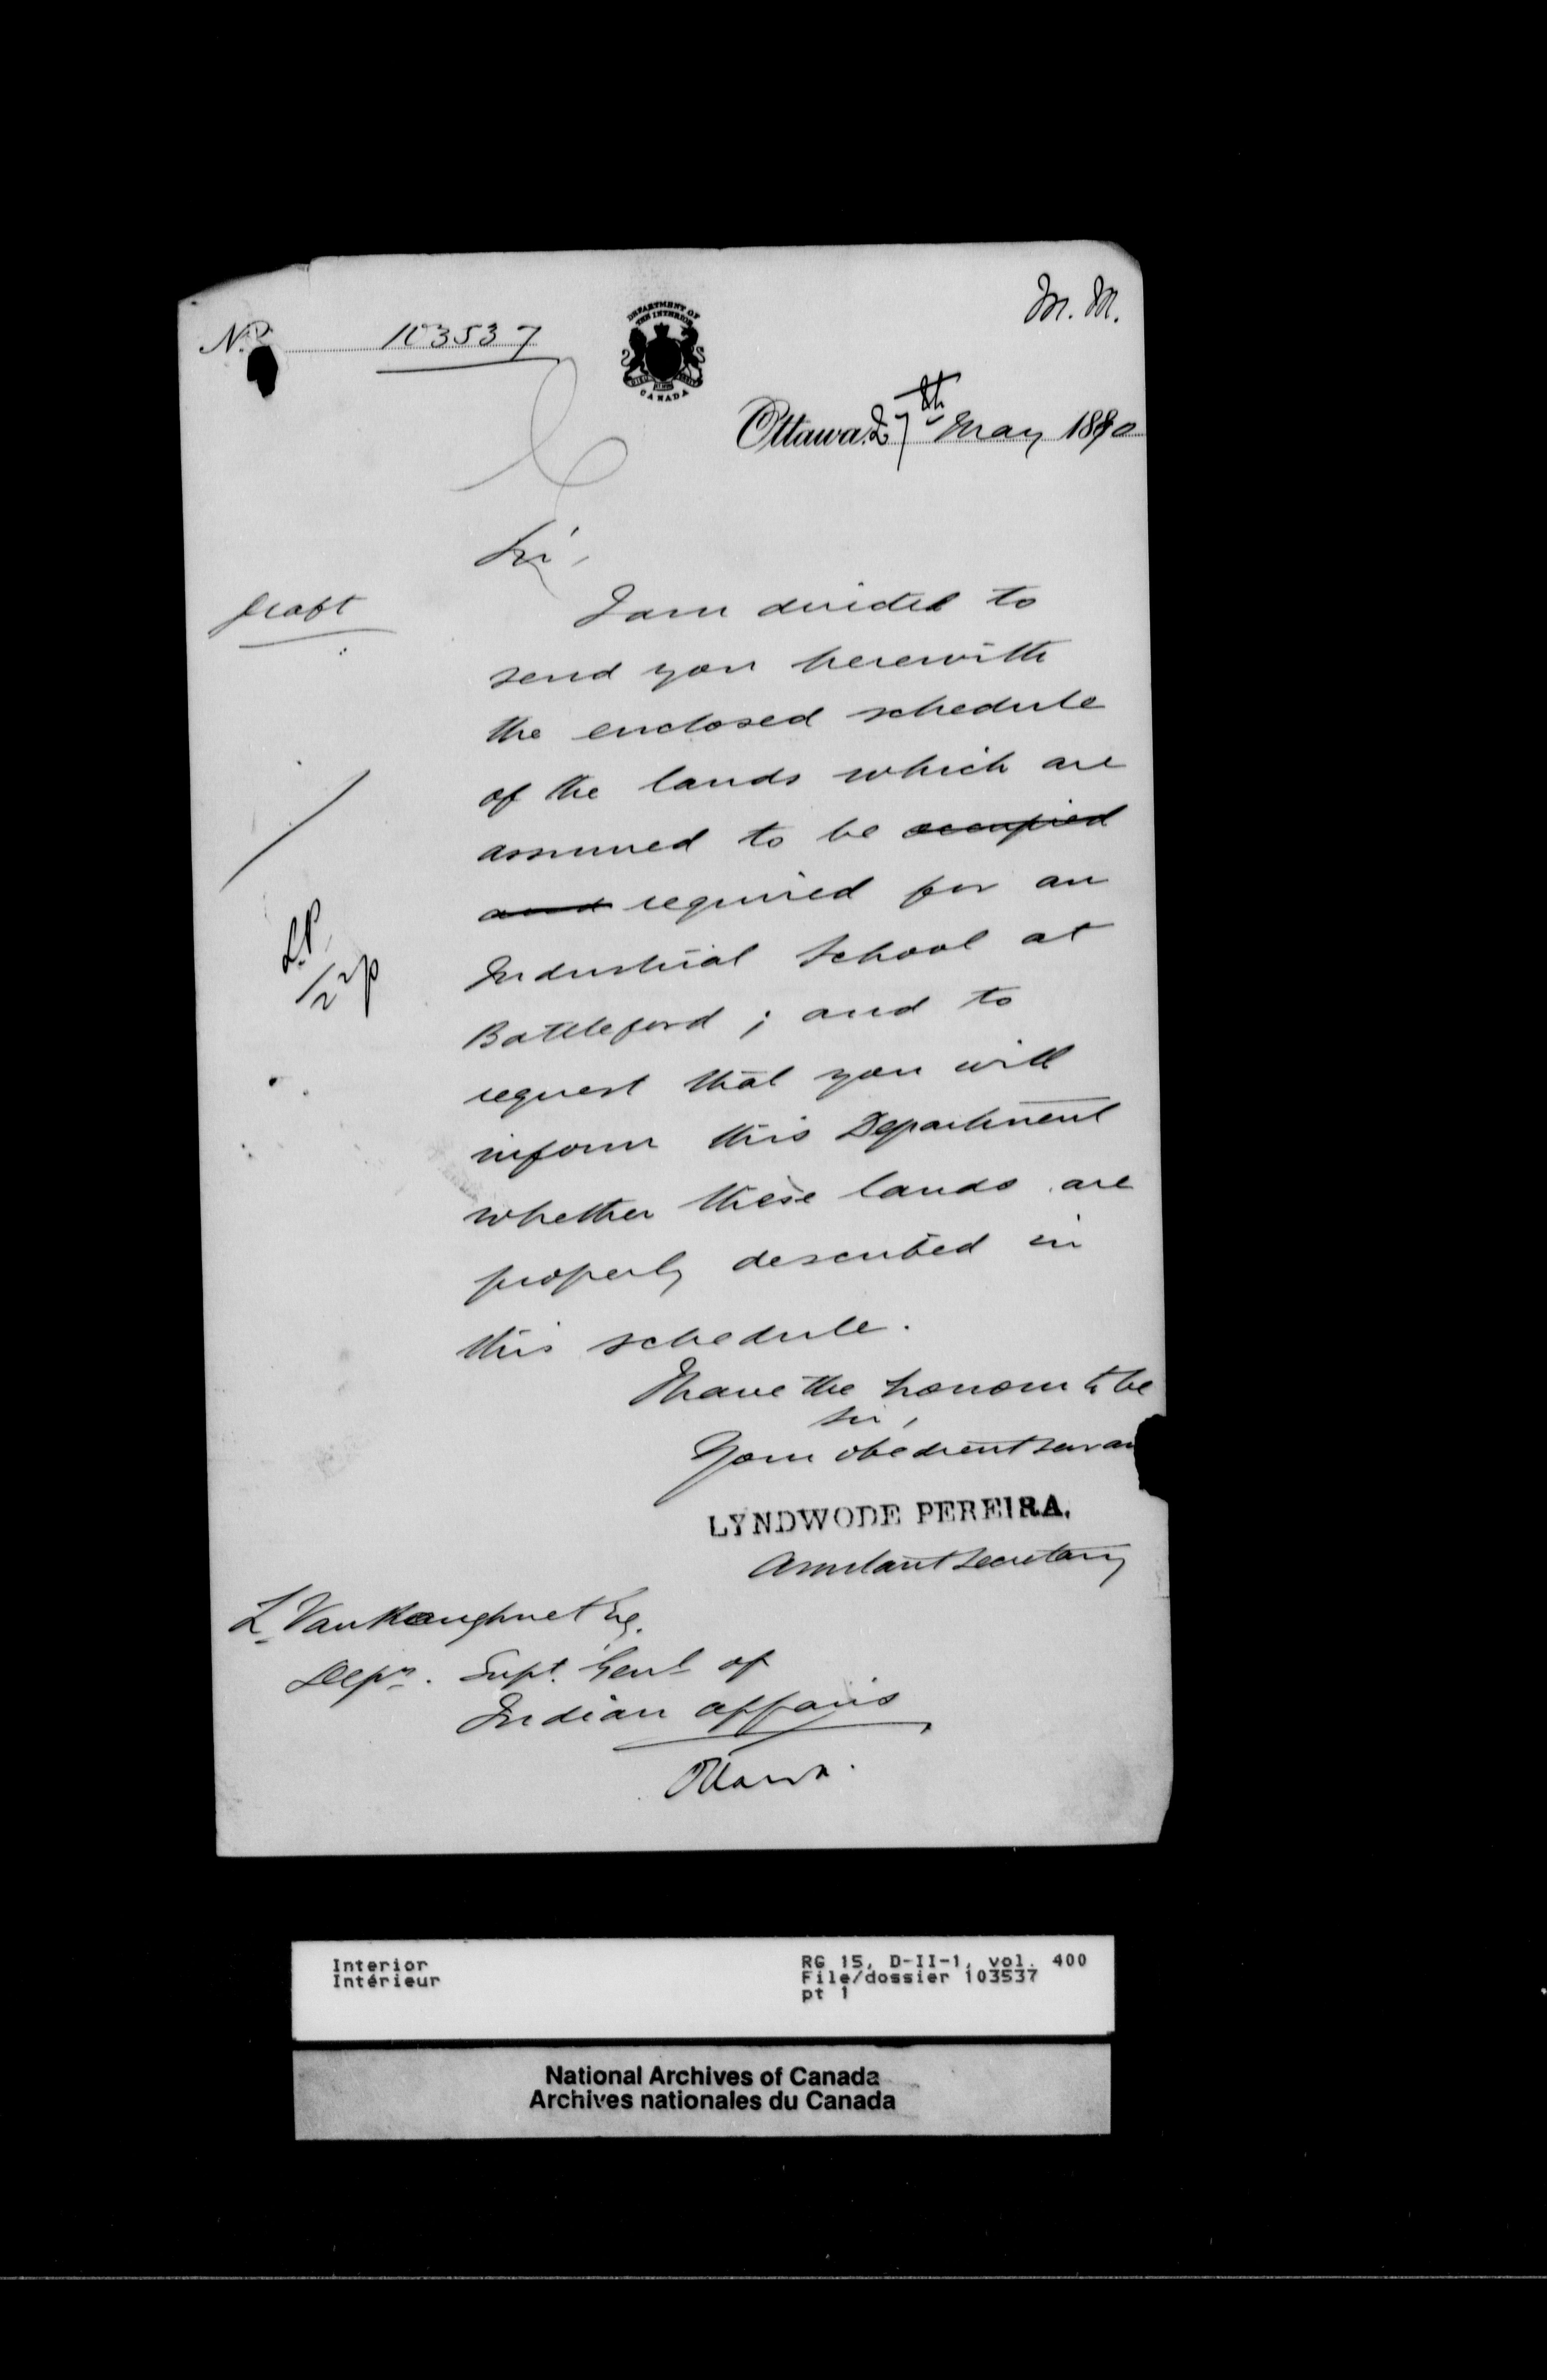 M. M.
No. 103537
DEPARTMENT OF
THE INTERIOR
CANADA
Ottawa, 27th May 1890
Sir,
draft
I am directed to
send you herewith
the enclosed schedule
of the lands which are
assumed to be occupied
and required for an
Industrial School at
Battleford ; and to
request that you will
inform this Department
whether these lands are
properly described in
this schedule.
L.P.
I have the honour to be
Sir,
Your obedient servan
LYNDWODE PEREIRA.
Assistant Secretary
L. VanKoughnet Esq.
Depy. Supt. Genl of
Indian Affairs
Ottawa.
Interior
Intérieur
RG 15, D-II-1, vol. 400
File/dossier 103537
pt 1
National Archives of Canada
Archives nationales du Canada